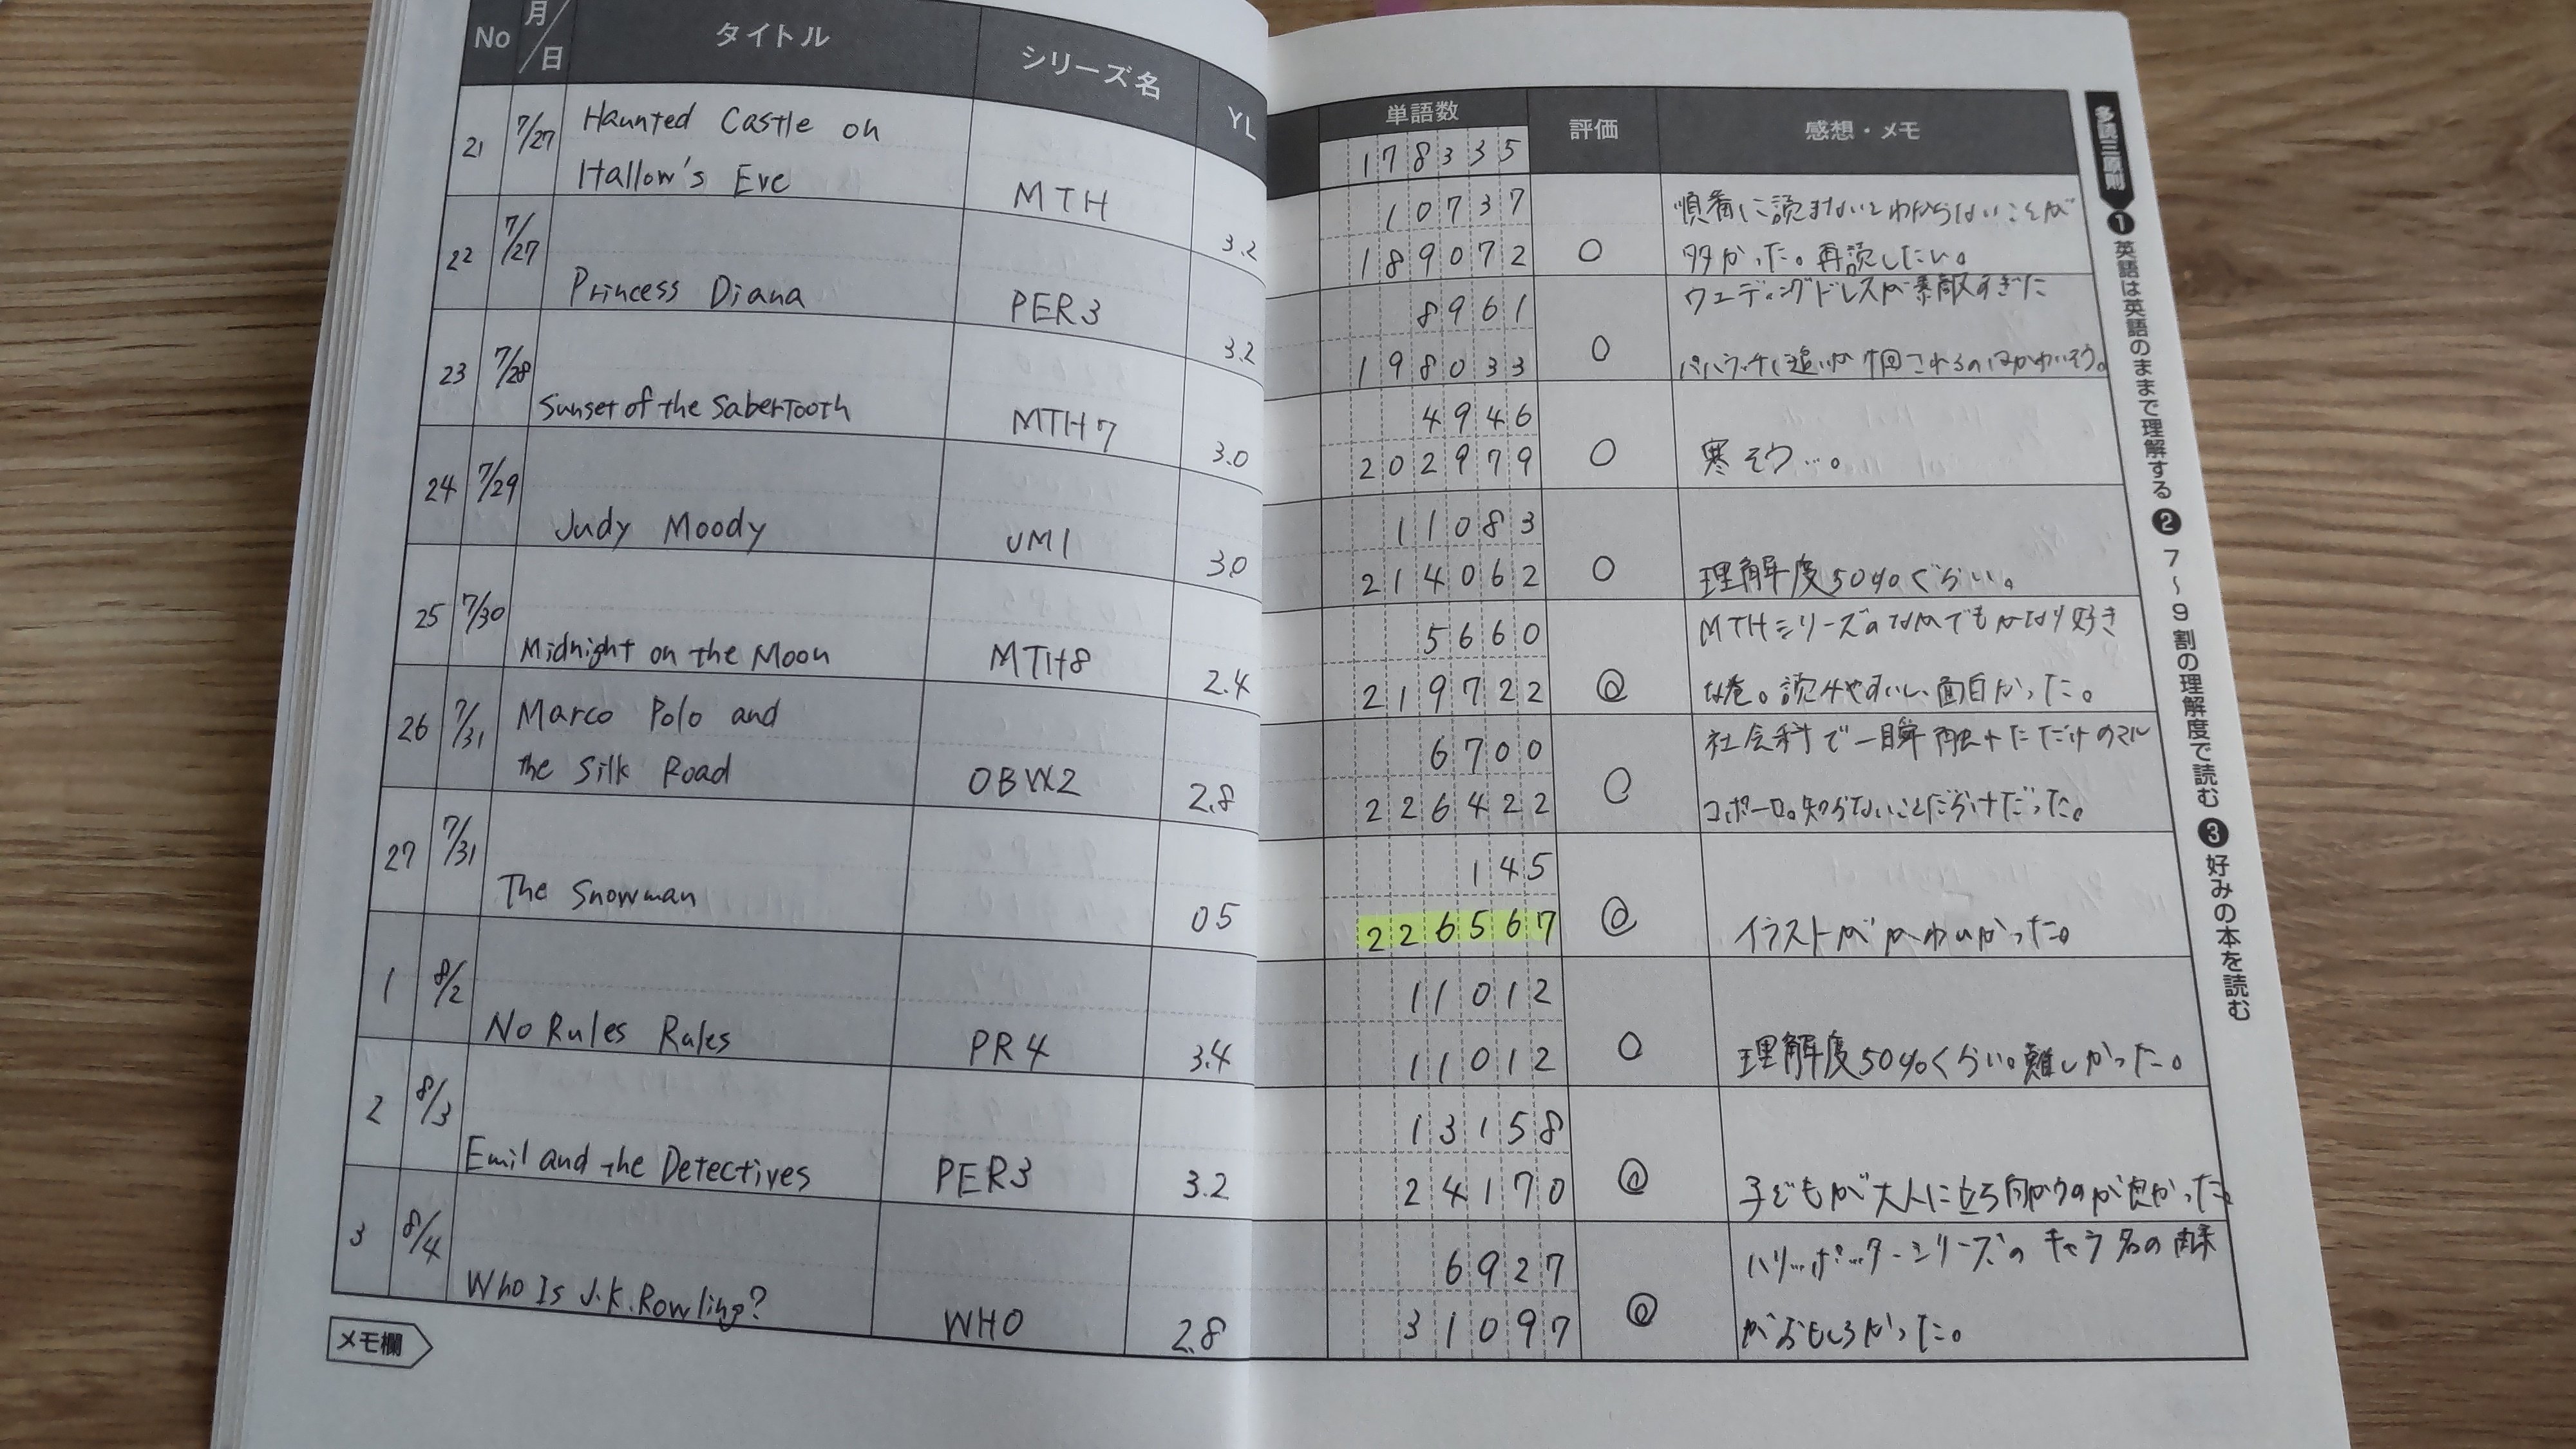 No 月/日 タイトル シリーズ名 YL
単語数 評価 感想・メモ
178335
21 7/27 Haunted Castle on
Hallow's Eve MTH 3.2
10737 順番に読まないとわからないことが
189072 ○ 多かった。再読したい。
22 7/27 Princess Diana PER3 3.2
8961 ウエディングドレスが素敵すぎた
198033 ○ パパラッチに追いか け回されるのはかわいそう。
23 7/28 Sunset of the SaberTooth MTH7 3.0
4946
202979 ○ 寒そう…。
24 7/29 Judy Moody JM1 3.0
11083
214062 ○ 理解度50%ぐらい。
25 7/30 Midnight on the Moon MTH8 2.4
5660 MTHシリーズのなかでもかなり好き
219722 ◎ な巻。読みやすいし、面白かった。
26 7/31 Marco Polo and
the Silk Road OBW2 2.8
6700 社会科で一瞬触れただけのマル
226422 ○ コポーロ。知らないことだらけだった。
27 7/31 The Snowman 0.5
145
226567 ◎ イラストがかわいかった。
1 8/2 No Rules Rules PR4 3.4
11012
11012 ○ 理解度50%くらい。難しかった。
2 8/3 Emil and the Detectives PER3 3.2
13158
24170 ◎ 子どもが大人に立ち向かうのが良かった。
3 8/4 Who Is J.K.Rowling? WHO 2.8
6927 ハリーポッターシリーズのキャラ名の由来
31097 ◎ がおもしろかった。
メモ欄
多読三原則 ❶ 英語は英語のままで理解する ❷ 7〜9割の理解度で読む ❸ 好みの本を読む